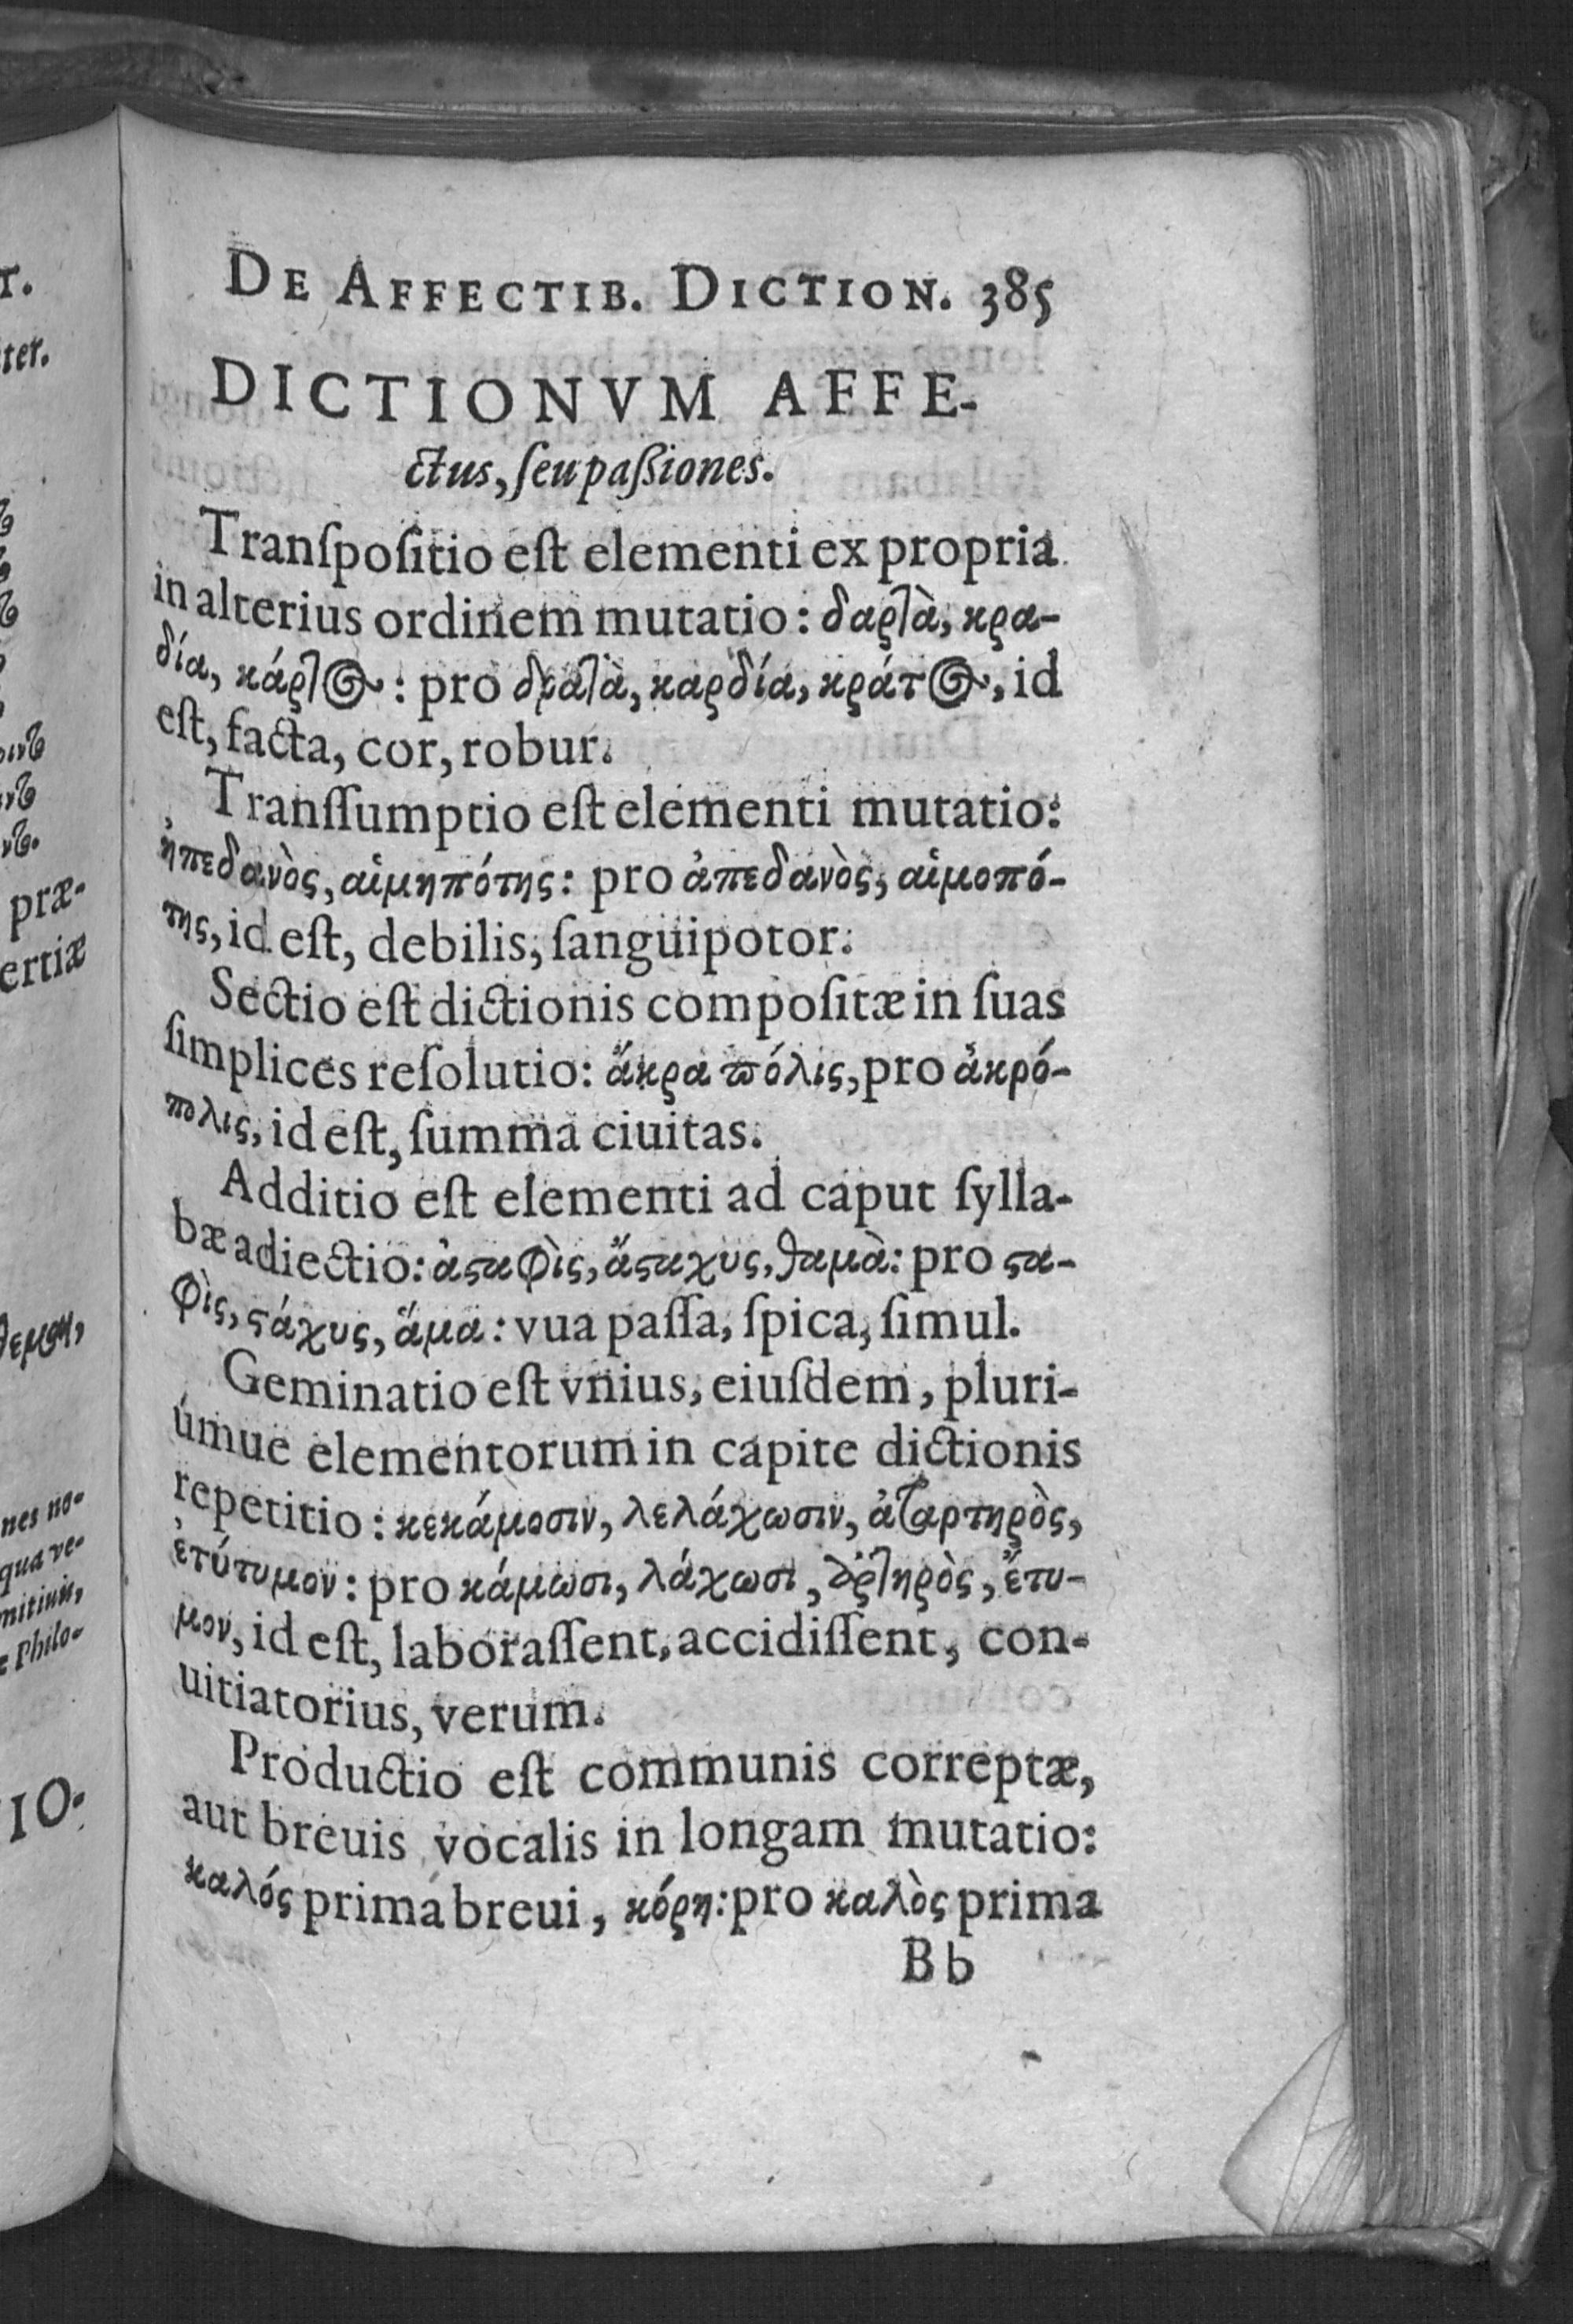 DE AFFECTIB. DICTION. 385
DICTIONVM AFFE-
ctus, ſeu paßiones.
Tranſpoſitio eſt elementi ex propria
in alterius ordinem mutatio: δαρτὰ, κρα-
δία, κάρτος: pro δρατὰ, καρδία, κράτος, id
eſt, facta, cor, robur.
Tranſſumptio eſt elementi mutatio:
ἠπεδανὸς, αἱμηπότης: pro ἀπεδανὸς, αἱμοπό-
της, id eſt, debilis, ſanguipotor.
Sectio eſt dictionis compoſitæ in ſuas
ſimplices reſolutio: ἄκρα πόλις, pro ἀκρό-
πολις, id eſt, ſumma ciuitas.
Additio eſt elementi ad caput ſylla-
bæ adiectio: ἀσαφὶς, ἄσαχυς, θαμὰ: pro ϛα-
φὶς, ϛάχυς, ἅμα: vua paſſa, ſpica, ſimul.
Geminatio eſt vnius, eiuſdem, pluri-
úmue elementorum in capite dictionis
repetitio: κεκάμωσιν, λελάχωσιν, ἀταρτηρὸς,
ἐτύτυμον: pro κάμωσι, λάχωσι, ἀρτηρὸς, ἔτυ-
μον, id eſt, laboraſſent, accidiſſent, con-
uitiatorius, verum.
Productio eſt communis correptæ,
aut breuis vocalis in longam mutatio:
καλός prima breui, κόρη: pro καλὸς prima
Bb
T.
ter.
præ-
ertiæ
nes no-
qua ve-
mitiuis,
Philo-
IO.